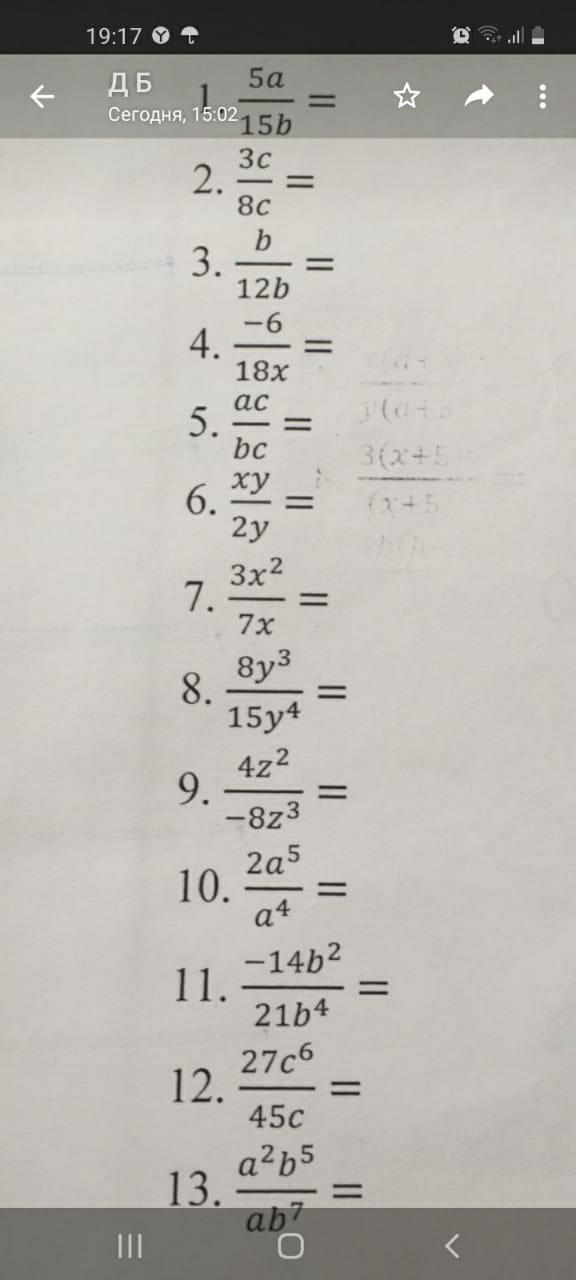 19:17
Д Б
Сегодня, 15:02
1. 5a/15b =
2. 3c/8c =
3. b/12b =
4. −6/18x =
5. ac/bc =
6. xy/2y =
7. 3x²/7x =
8. 8y³/15y⁴ =
9. 4z²/−8z³ =
10. 2a⁵/a⁴ =
11. −14b²/21b⁴ =
12. 27c⁶/45c =
13. a²b⁵/ab⁷ =
3(x+5
(x+5